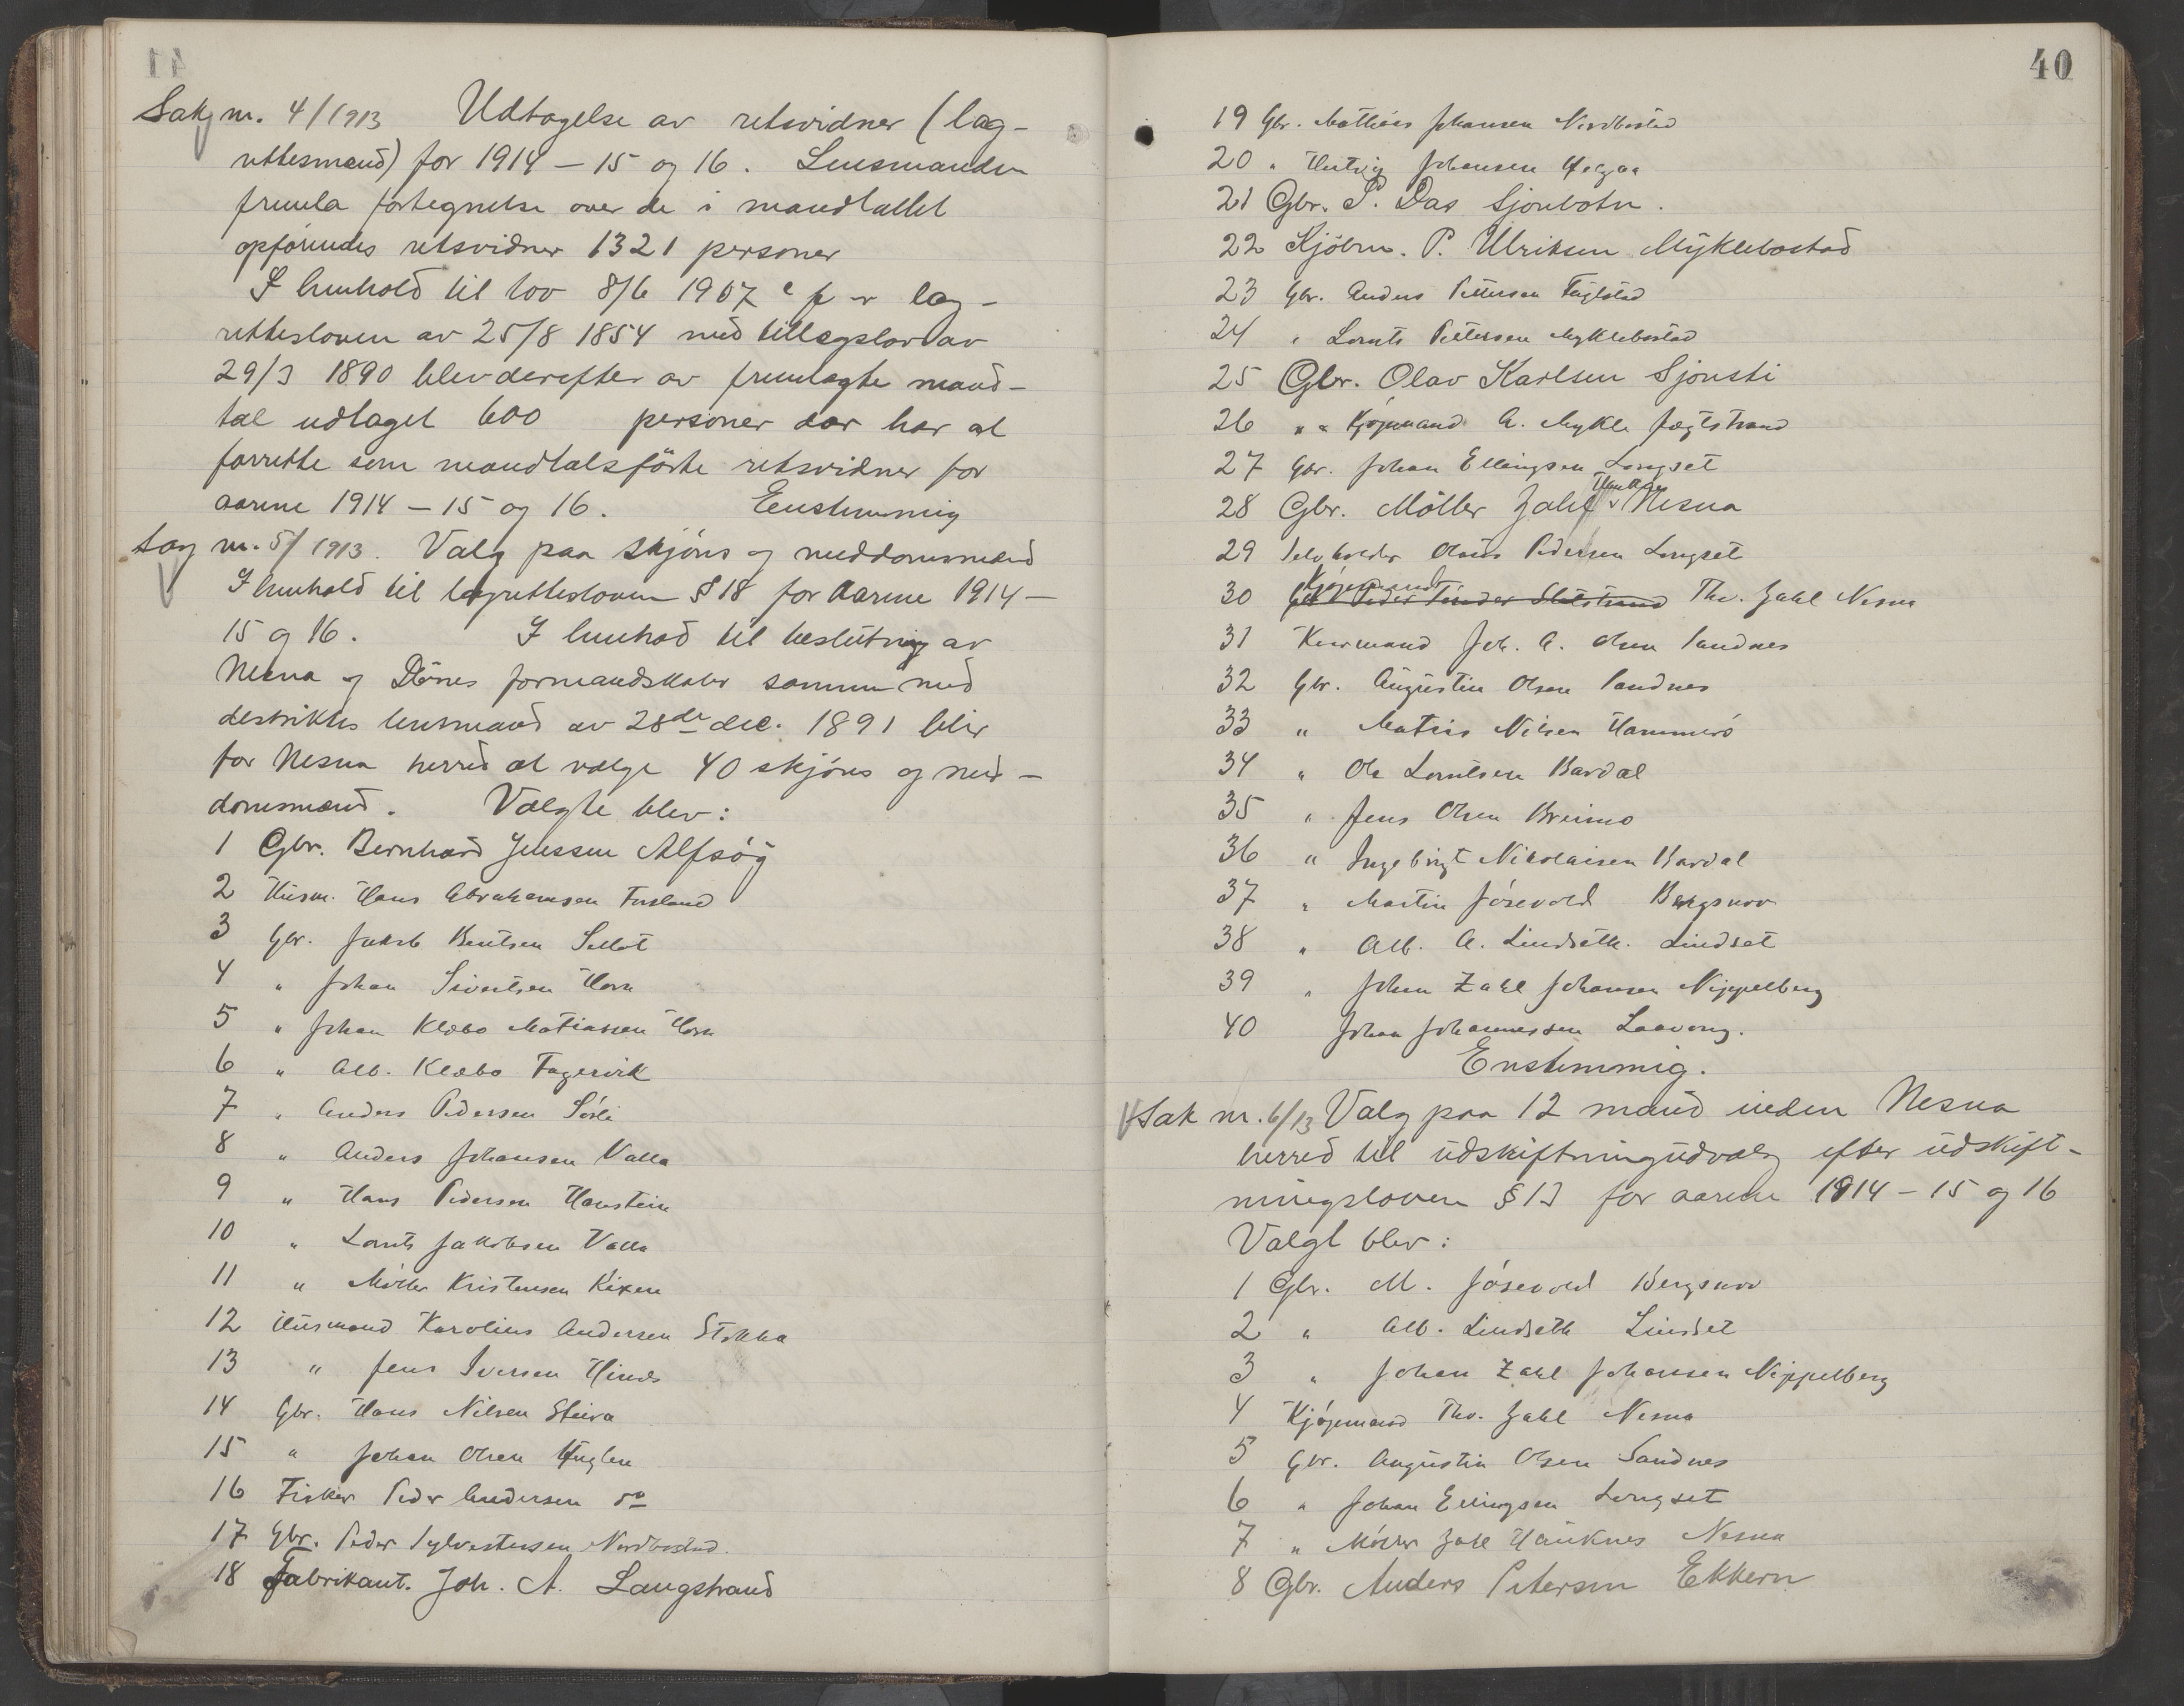 Sak nr. 4/1913 Udtagelse av retsvidner (lag-
rettesmænd) for 1914 - 15 og 16. Lensmanden
fremla fortegnelse over de i mandtallet
opförendes retsvidner 1321 personer
I henhold til lov 8/6 1907 lag-
rettesloven av 25/8 1854 med tillægslov av
29/3 1890 blev derefter av fremlagte mand-
tal udtaget 600 personer der har at
forrette som mandtalsförte retsvidner for
aarene 1914 - 15 og 16. Enstemmig
Sag nr. 5/1913. Valg paa skjöns og meddomsmænd
I henhold til lagrettesloven § 18 for aarene 1914 -
15 og 16. I henhod til beslutning av
Nesna og Dönes formandskaber sammen med
destriktes lensmænd av 28de dec. 1891 blir
for Nesna herred at vælge 40 skjöns og med-
domsmænd. Valgte blev:
1 Gbr. Bernhard Jenssen Alfsög
2 Husm. Hans Abrahamsen Forsland
3 Gbr. Jakob Bentsen Sellöt
4 " Johan Sivertsen Horn
5 " Johan Klæbo Matiassen Horn
6 " Alb. Klæbo Fagervik
7 " Anders Pedersen Sörli
8 " Anders Johansen Valla
9 " Hans Pedersen Hanstein
10 " Lorents Jakobsen Valla
11 " Möller Kristensen Kixen
12 Husmand Karolius Andersen Stokka
13 " Jens Iversen
14 Gbr. Hans Nilsen Steiro
15 " Johan Olsen Huglen
16 Fisker Peder Andersen do
17 Gbr. Peder Sylvestersen Nordbostad.
18 Fabrikant. Joh. A. Langstrand
40
19 Gbr. Mathias Johansen Nordbostad
20 " Hartvig Johansen
21 Gbr. P. Das Sjonbotn.
22 Kjöbm. P. Ulriksen Myklebostad
23 Gbr. Anders Pettersen
24 " Lorents Pettersen Myklebostad
25 Gbr. Olav Karlsen Sjonsti
26 " " Kjöpmand A. Mykle Jægtstrand
27 Gbr. Johan Ellingsen Langset
28 Gbr. Möller Zahl Nesna
29 Selveholder Olaus Pedersen Langset
30 Kjöpmand Gbr. Peder Tender Slotstrand Thv. Zahl Nesna
31 Kirmand Joh. A. Olsen Sandnes
32 Gbr. Augustin Olsen Sandnes
33 " Matias Nilsen Hammerö
34 " Ole Lorntsen Bardal
35 " Jens Olsen Breimo
36 " Ingebrigt Nikolaisen Bardal
37 " Martin Jösevold Bergsnov
38 " Alb. A. Lindseth. Lindset
39 " Johan Zahl Johansen Nippelberg
40 Johan Johannessen Laavong.
Enstemmig.
Sak nr. 6/13 Valg paa 12 mænd inden Nesna
herred til udskiftningudvalg efter udskift-
ningsloven § 13 for aarene 1914 - 15 og 16
Valgt blev:
1 Gbr. M. Jösevold Bergsnov
2 " Alb. Lindseth Lindset
3 " Johan Zahl Johansen Nippelberg
4 Kjöpmand Thv. Zahl Nesna
5 Gbr. Augustin Olsen Sandnes
6 " Johan Ellingsen Langset
7 " Möller Zahl Hauknes Nesna
8 Gbr. Anders Petersen Ekkern